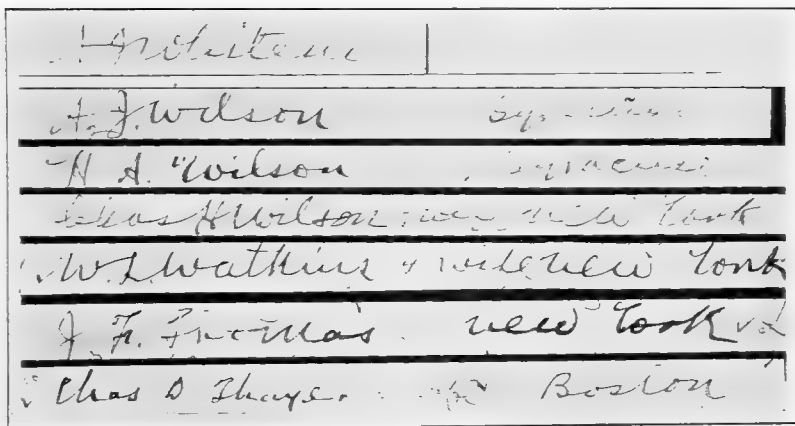 A. J. Wilson Syracuse
H A. Wilson Syracuse
Chas H Wilson New York
W. L. Watkins & wife New York
J. F. Thomas. New York
Chas D Thayer. Boston